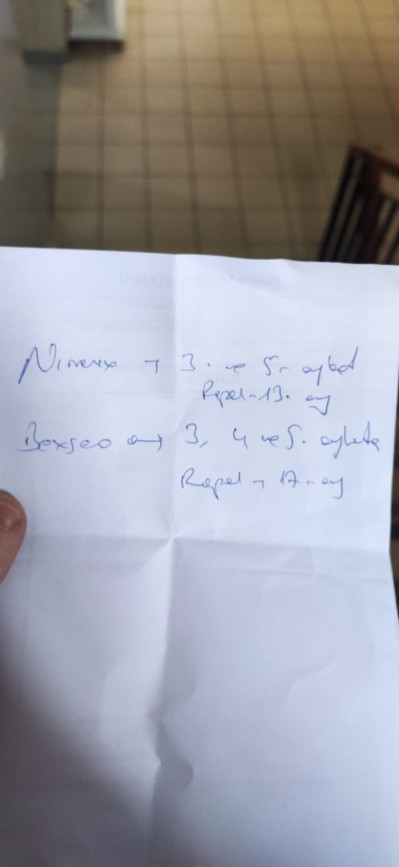 Nimenrx → 3. ve 5. aylarda
Rapel → 13. ay
Bexsero → 3, 4 ve 5. aylarda
Rapel → 17. ay